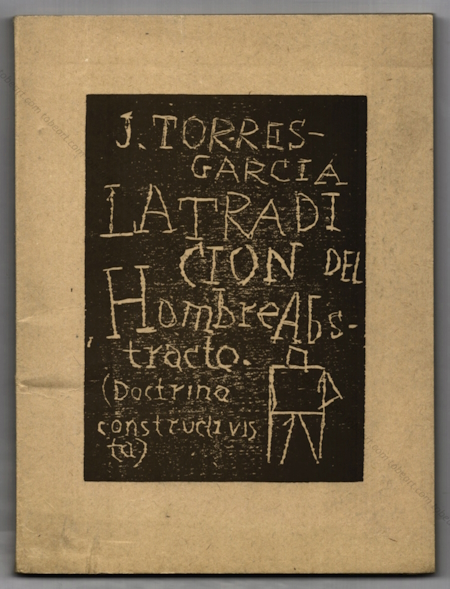 J. TORRES-
GARCIA
LA TRADI
CION DEL
Hombre Abs-
tracto.
(Doctrina
constructivis
ta)